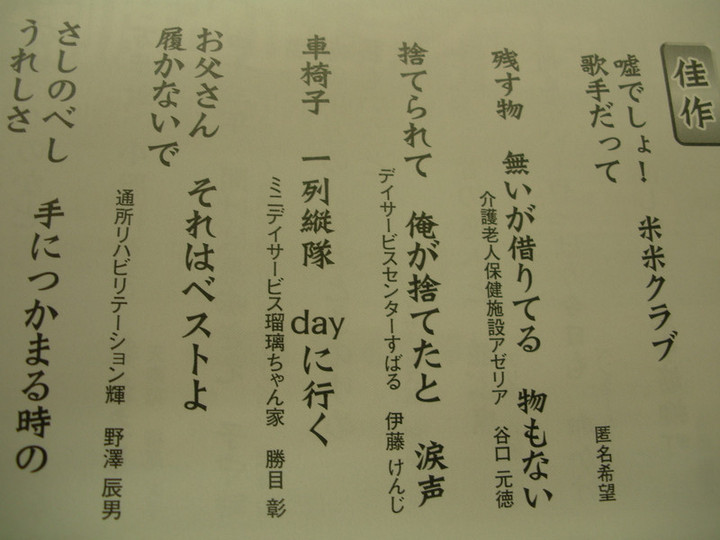 佳作
嘘でしょ！ 米米クラブ
歌手だって
匿名希望
残す物 無いが借りてる 物もない
介護老人保健施設アゼリア 谷口 元徳
捨てられて 俺が捨てたと 涙声
デイサービスセンターすばる 伊藤 けんじ
車椅子 一列縦隊 dayに行く
ミニデイサービス瑠璃ちゃん家 勝目 彰
お父さん それはベストよ
履かないで
通所リハビリテーション輝 野澤 辰男
さしのべし 手につかまる時の
うれしさ